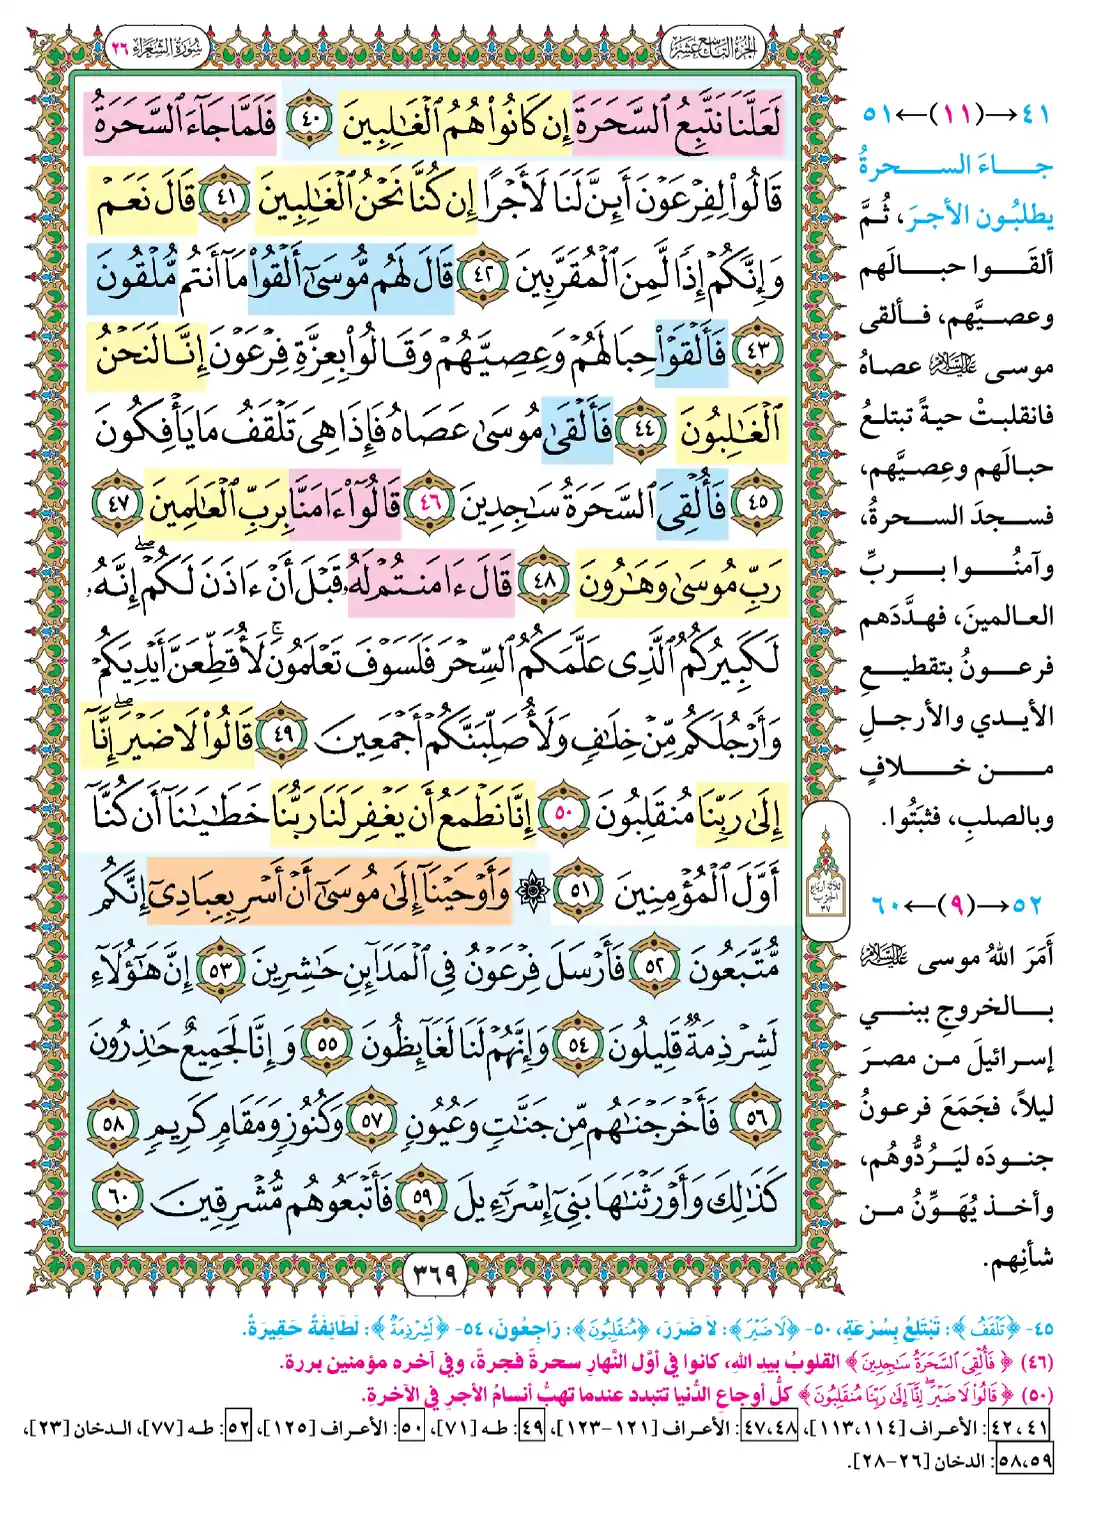 الجزء التاسع عشر
سورة الشعراء ٢٦
لَعَلَّنَا نَتَّبِعُ ٱلسَّحَرَةَ إِن كَانُوا۟ هُمُ ٱلْغَـٰلِبِينَ ٤٠ فَلَمَّا جَآءَ ٱلسَّحَرَةُ
قَالُوا۟ لِفِرْعَوْنَ أَئِنَّ لَنَا لَأَجْرًا إِن كُنَّا نَحْنُ ٱلْغَـٰلِبِينَ ٤١ قَالَ نَعَمْ
وَإِنَّكُمْ إِذًا لَّمِنَ ٱلْمُقَرَّبِينَ ٤٢ قَالَ لَهُم مُّوسَىٰٓ أَلْقُوا۟ مَآ أَنتُم مُّلْقُونَ
٤٣ فَأَلْقَوْا۟ حِبَالَهُمْ وَعِصِيَّهُمْ وَقَالُوا۟ بِعِزَّةِ فِرْعَوْنَ إِنَّا لَنَحْنُ
ٱلْغَـٰلِبُونَ ٤٤ فَأَلْقَىٰ مُوسَىٰ عَصَاهُ فَإِذَا هِىَ تَلْقَفُ مَا يَأْفِكُونَ
٤٥ فَأُلْقِىَ ٱلسَّحَرَةُ سَـٰجِدِينَ ٤٦ قَالُوٓا۟ ءَامَنَّا بِرَبِّ ٱلْعَـٰلَمِينَ ٤٧
رَبِّ مُوسَىٰ وَهَـٰرُونَ ٤٨ قَالَ ءَامَنتُمْ لَهُۥ قَبْلَ أَنْ ءَاذَنَ لَكُمْ ۖ إِنَّهُۥ
لَكَبِيرُكُمُ ٱلَّذِى عَلَّمَكُمُ ٱلسِّحْرَ فَلَسَوْفَ تَعْلَمُونَ ۚ لَأُقَطِّعَنَّ أَيْدِيَكُمْ
وَأَرْجُلَكُم مِّنْ خِلَـٰفٍ وَلَأُصَلِّبَنَّكُمْ أَجْمَعِينَ ٤٩ قَالُوا۟ لَا ضَيْرَ ۖ إِنَّآ
إِلَىٰ رَبِّنَا مُنقَلِبُونَ ٥٠ إِنَّا نَطْمَعُ أَن يَغْفِرَ لَنَا رَبُّنَا خَطَـٰيَـٰنَآ أَن كُنَّآ
أَوَّلَ ٱلْمُؤْمِنِينَ ٥١ ۞ وَأَوْحَيْنَآ إِلَىٰ مُوسَىٰٓ أَنْ أَسْرِ بِعِبَادِىٓ إِنَّكُم
مُّتَّبَعُونَ ٥٢ فَأَرْسَلَ فِرْعَوْنُ فِى ٱلْمَدَآئِنِ حَـٰشِرِينَ ٥٣ إِنَّ هَـٰٓؤُلَآءِ
لَشِرْذِمَةٌ قَلِيلُونَ ٥٤ وَإِنَّهُمْ لَنَا لَغَآئِظُونَ ٥٥ وَإِنَّا لَجَمِيعٌ حَـٰذِرُونَ
٥٦ فَأَخْرَجْنَـٰهُم مِّن جَنَّـٰتٍ وَعُيُونٍ ٥٧ وَكُنُوزٍ وَمَقَامٍ كَرِيمٍ ٥٨
كَذَٰلِكَ وَأَوْرَثْنَـٰهَا بَنِىٓ إِسْرَٰٓءِيلَ ٥٩ فَأَتْبَعُوهُم مُّشْرِقِينَ ٦٠
٣٦٩
٤١→(١١)←٥١
جاءَ السحرةُ
يطلبُون الأجرَ، ثُمَّ
ألقَوا حبالَهم
وعصيَّهم، فألقى
موسى عليه السلام عصاهُ
فانقلبتْ حيةً تبتلعُ
حبالَهم وعِصيَّهم،
فسجدَ السحرةُ،
وآمنُوا بربِّ
العالمينَ، فهدَّدَهم
فرعونُ بتقطيعِ
الأيدي والأرجلِ
من خلافٍ
وبالصلبِ، فثبَتُوا.
ثلاثة أرباع
الحزب
٣٧
٥٢→(٩)←٦٠
أَمَرَ اللهُ موسى عليه السلام
بالخروجِ ببني
إسرائيلَ من مصرَ
ليلاً، فجَمَعَ فرعونُ
جنودَه ليَرُدُّوهُم،
وأخذ يُهَوِّنُ من
شأنِهم.
٤٥- ﴿تَلْقَفُ﴾: تَبْتَلِعُ بِسُرْعَةٍ، ٥٠- ﴿لَا ضَيْرَ﴾: لَا ضَرَرَ، ﴿مُنقَلِبُونَ﴾: رَاجِعُونَ، ٥٤- ﴿لَشِرْذِمَةٌ﴾: لَطَائِفَةٌ حَقِيرَةٌ.
(٤٦) ﴿فَأُلْقِىَ ٱلسَّحَرَةُ سَـٰجِدِينَ﴾ القلوبُ بيدِ اللهِ، كانوا في أوَّل النَّهارِ سحرةً فجرةً، وفي آخره مؤمنين بررة.
(٥٠) ﴿قَالُوا۟ لَا ضَيْرَ ۖ إِنَّآ إِلَىٰ رَبِّنَا مُنقَلِبُونَ﴾ كلُّ أوجاعِ الدُّنيا تتبدد عندما تهبُّ أنسامُ الأجرِ في الآخرةِ.
٤١، ٤٢: الأعراف [١١٣، ١١٤]، ٤٧، ٤٨: الأعراف [١٢١-١٢٣]، ٤٩: طه [٧١]، ٥٠: الأعراف [١٢٥]، ٥٢: طه [٧٧]، الدخان [٢٣]،
٥٨، ٥٩: الدخان [٢٦-٢٨].